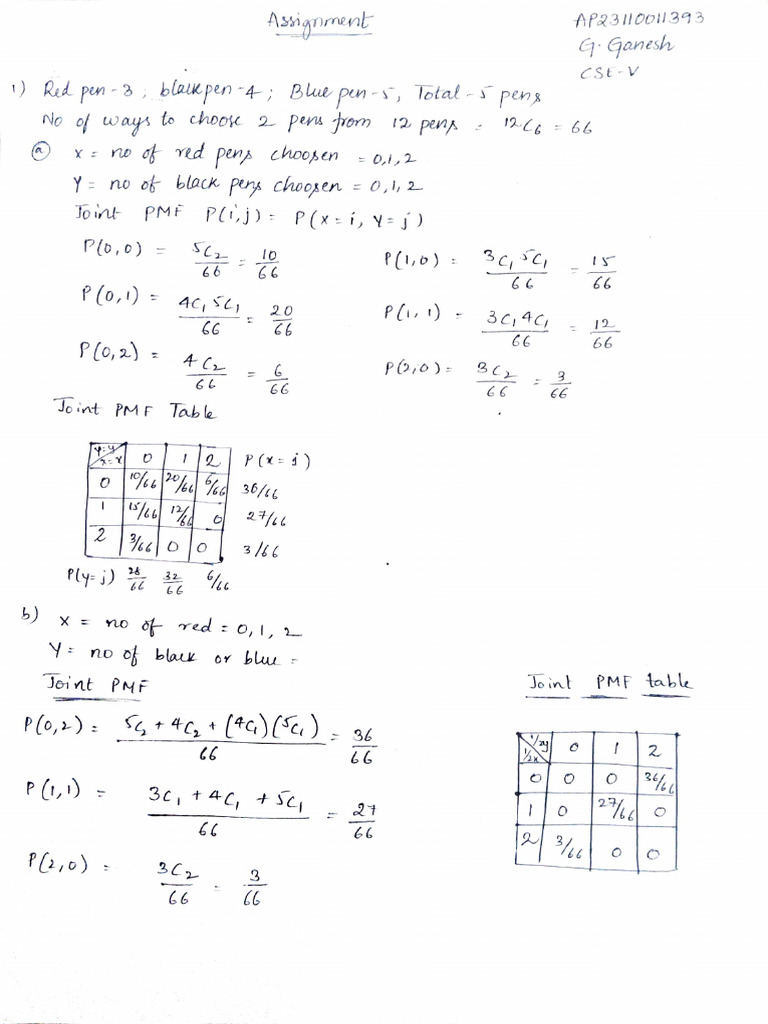 Assignment
AP23110011393
G. Ganesh
CSE-V
1) Red pen-3, black pen-4; Blue pen-5, Total-5 pens
No of ways to choose 2 pens from 12 pens = 12C6 = 66
(a) x = no of red pens choosen = 0,1,2
Y = no of black pens choosen = 0,1,2
Joint PMF P(i,j) = P(x=i, Y=j)
P(0,0) = 5C2/66 = 10/66
P(1,0) = 3C1 5C1/66 = 15/66
P(0,1) = 4C1 5C1/66 = 20/66
P(1,1) = 3C1 4C1/66 = 12/66
P(0,2) = 4C2/66 = 6/66
P(2,0) = 3C2/66 = 3/66
Joint PMF Table
Y=y x=x 0 1 2 P(x=j)
0 10/66 20/66 6/66 36/66
1 15/66 12/66 0 27/66
2 3/66 0 0 3/66
P(y=j) 28/66 32/66 6/66
b) x = no of red = 0,1,2
Y = no of black or blue =
Joint PMF
Joint PMF table
P(0,2) = 5C2 + 4C2 + (4C1)(5C1)/66 = 36/66
P(1,1) = 3C1 + 4C1 + 5C1/66 = 27/66
P(2,0) = 3C2/66 = 3/66
0 1 2
0 0 0 36/66
1 0 27/66 0
2 3/66 0 0